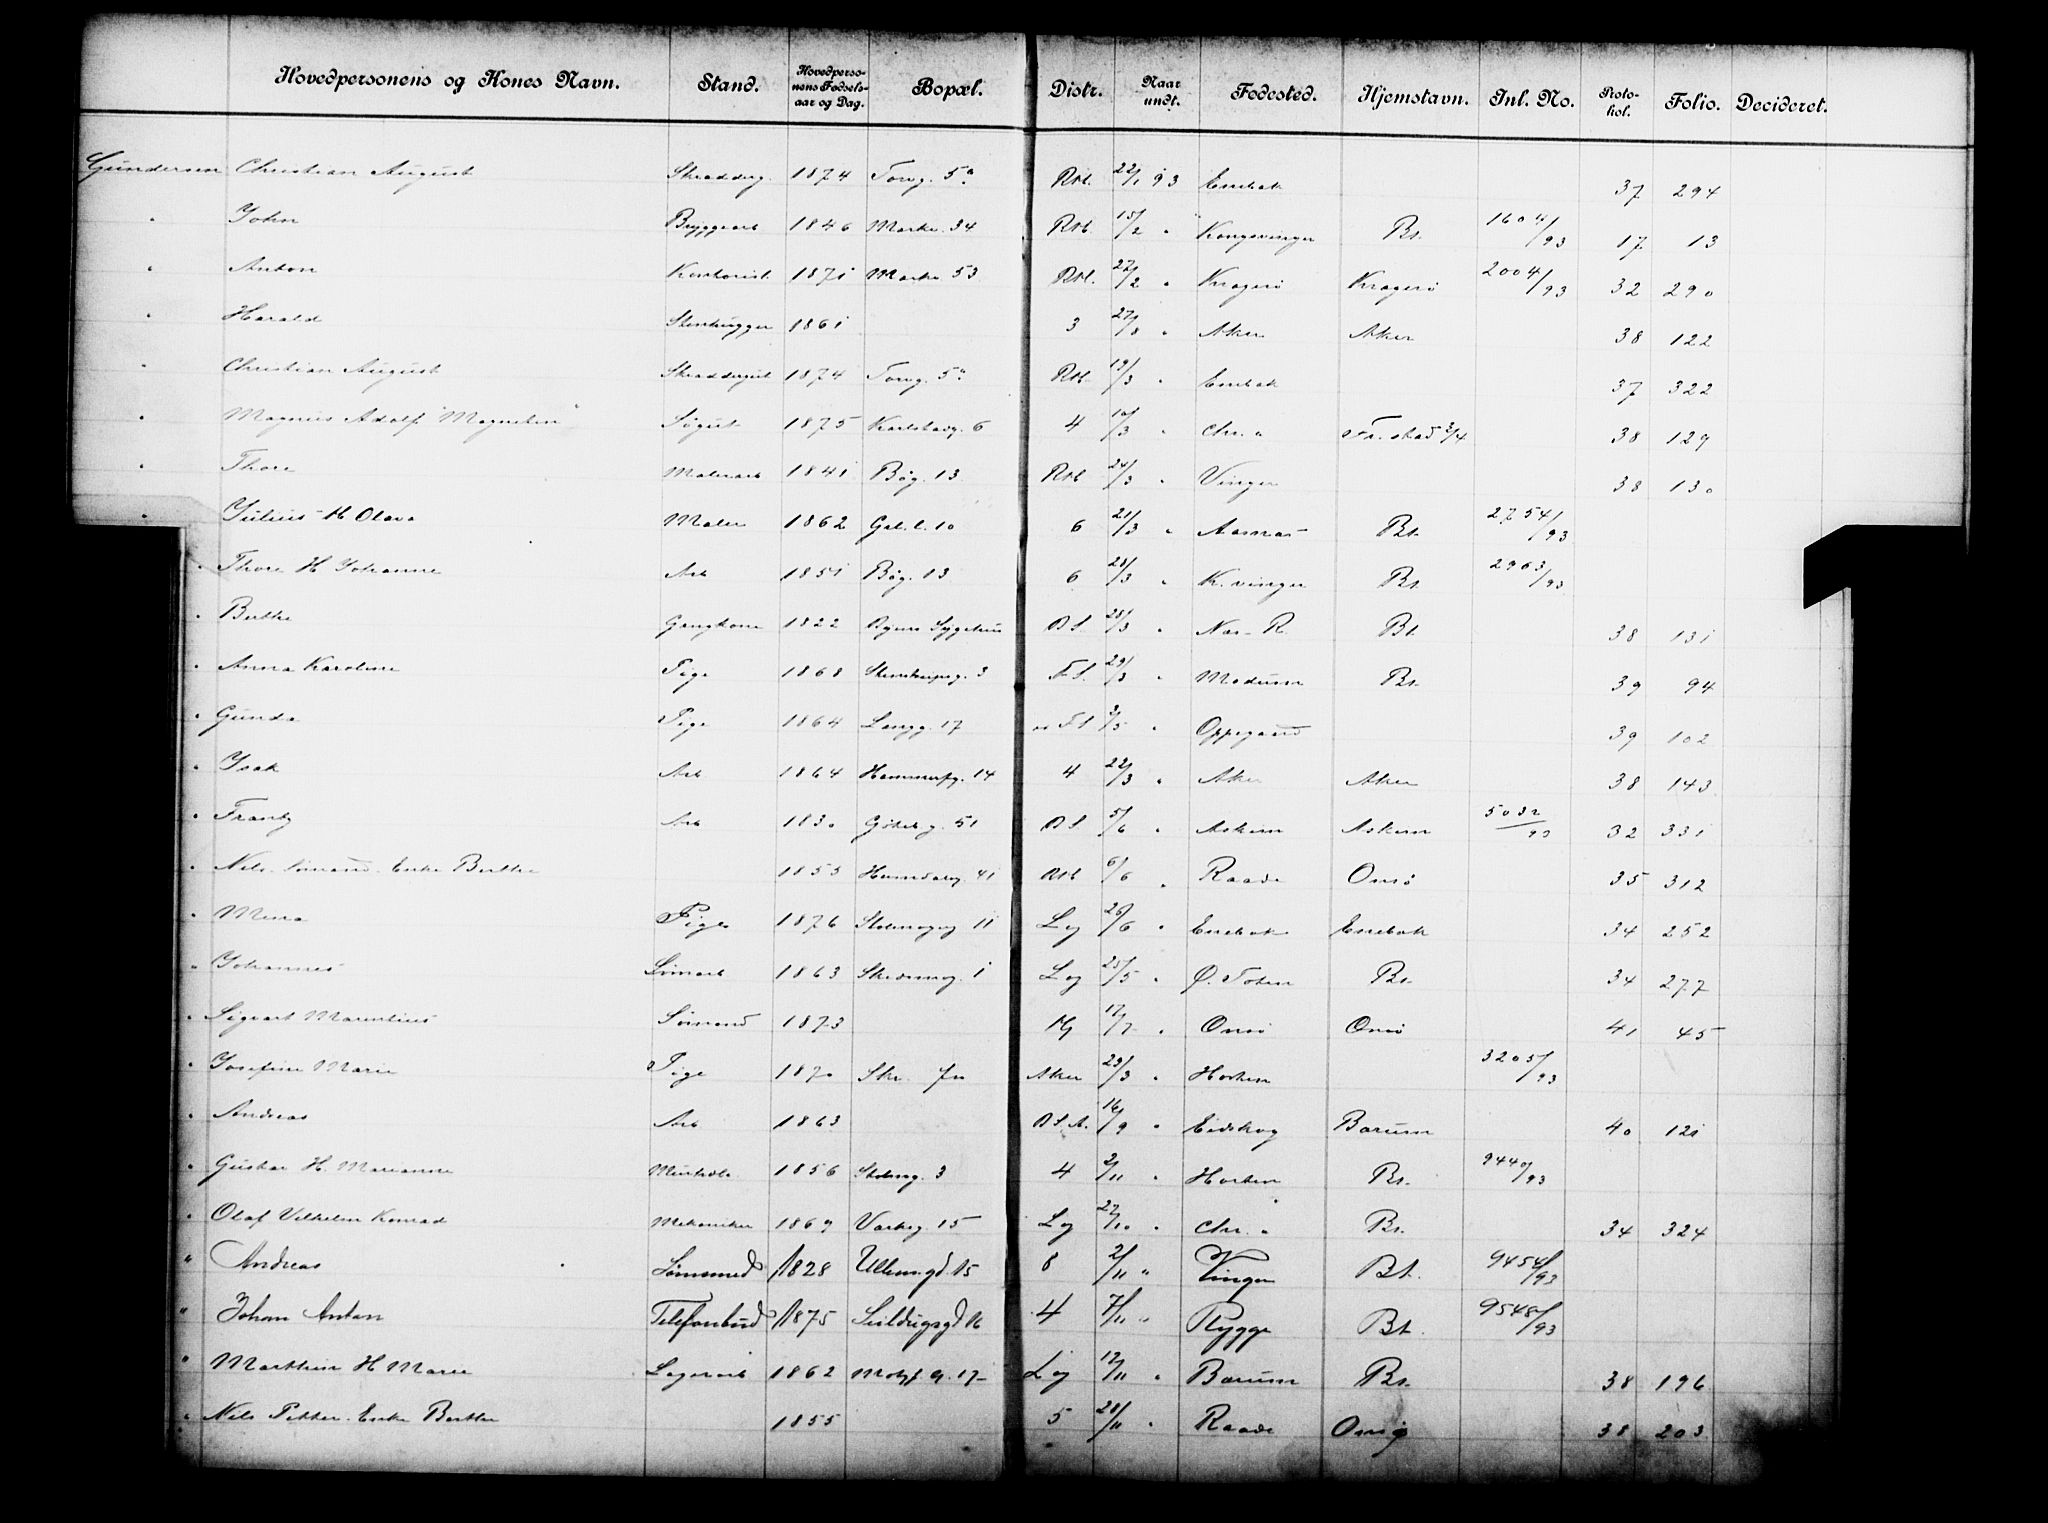 Hovedpersonens og Kones Navn. Stand. Hovedpersonens Fødselsaar og Dag. Bopæl. Distr. Naar undt. Fødested. Hjemstavn. Inl. No. Protokol. Folio. Decideret.
Gundersen Christian August Skrædderg. 1874 Torvg. 5a Rbl. 22/1 93 Enebak 37 294
" John Bryggearb 1846 Markv. 34 Rbl. 15/2 " Kongsvinger Bt. 1604/93 17 13
" Anton Kontorist 1871 Markv. 53 Rbl. 27/2 " Kragerø Kragerø 2004/93 32 290
" Harald Stenhugger 1861 3 27/8 " Aker Aker 38 122
" Christian August Skræddergut 1874 Torvg. 5a Rbl. 19/3 " Enebak 37 322
" Magnus Adolf "Magnelin" Søgut 1875 Karlstadg. 6 4 10/3 " Chr.a Fr.stad 2/4 38 129
" Thore Malerarb 1841 Bøg. 13 Rbl 20/3 " Vinger 38 130
" Julius H Olava Maler 1862 Gal.l. 10 6 21/3 " Aasnæs Bt. 2754/93
" Thore H Johanne Arb 1851 Bøg. 13 6 25/3 " K.vinger Bt. 2963/93
" Berthe Gangkone 1822 Byens Sygehus B S. 28/3 " Næs-R. Bt. 38 131
" Anna Karoline Pige 1868 Stenstrupsg. 3 F S. 29/3 " Modum Bt. 39 94
" Gunda Pige 1864 Langg. 17 F S 3/5 " Oppegaard 39 102
" Isak Arb 1864 Hammerfg. 14 4 22/3 " Aker Aker 38 143
" Frantz Arb 1830 Gøteb g. 51 B S 5/6 " Askim Askim 5032/93 32 331
" Nils. Sømand. Enke Berthe 1855 Hemsdalg. 41 Rbl 6/6 " Raade Onsø 35 312
" Mina Pige 1876 Stolmagerg 11 Lg 26/6 " Enebak Enebak 34 252
" Johannes Tømarb 1863 Skedsmog. 1 Lg 25/5 " Ø. Toten Bt. 34 277
" Sigvart Marentius Sømand 1873 17/7 " Onsø Onsø 41 45
" Josefine Marie Pige 1870 Aker 23/3 " Horten 3205/93
" Andreas Arb 1863 B S A. 16/9 " Eidskog Bærum 40 121
" Gustav H. Marianne 1856 Stolmg. 3 4 2/11 " Horten Bt. 9440/93
" Olaf Vilhelm Konrad Mekaniker 1869 15 Lg 27/10 " Chr.a Bt. 34 324
" Andreas Tømmermd 1828 8 2/11 " Vinger Bt. 9454/93
" Johan Anton Telefonbud 1875 Seildugsgd 16 4 7/11 " Rygge Bt. 9548/93
" Marthin H Marie Lagerarb 1862 Lg 12/11 " Bærum Bt. 38 196
" Nils Petter. Enke Berthe 1855 5 28/11 " Raade Onsø 38 203